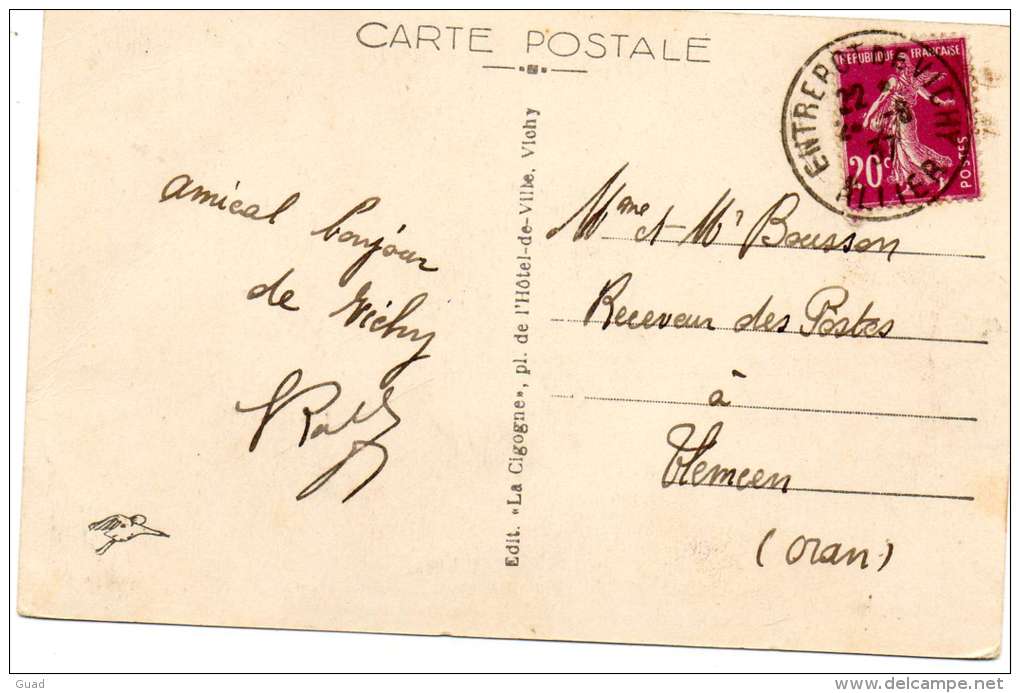 CARTE POSTALE
amical bonjour
de Vichy
Edit. «La Cigogne», pl. de l'Hôtel-de-Ville, Vichy
RÉPUBLIQUE FRANÇAISE
20c
POSTES
ENTREPOT DE VICHY
22
37
ALLIER
Mme et Mr Bousson
Receveur des Postes
à
Tlemcen
(Oran)
Guad
www.delcampe.net